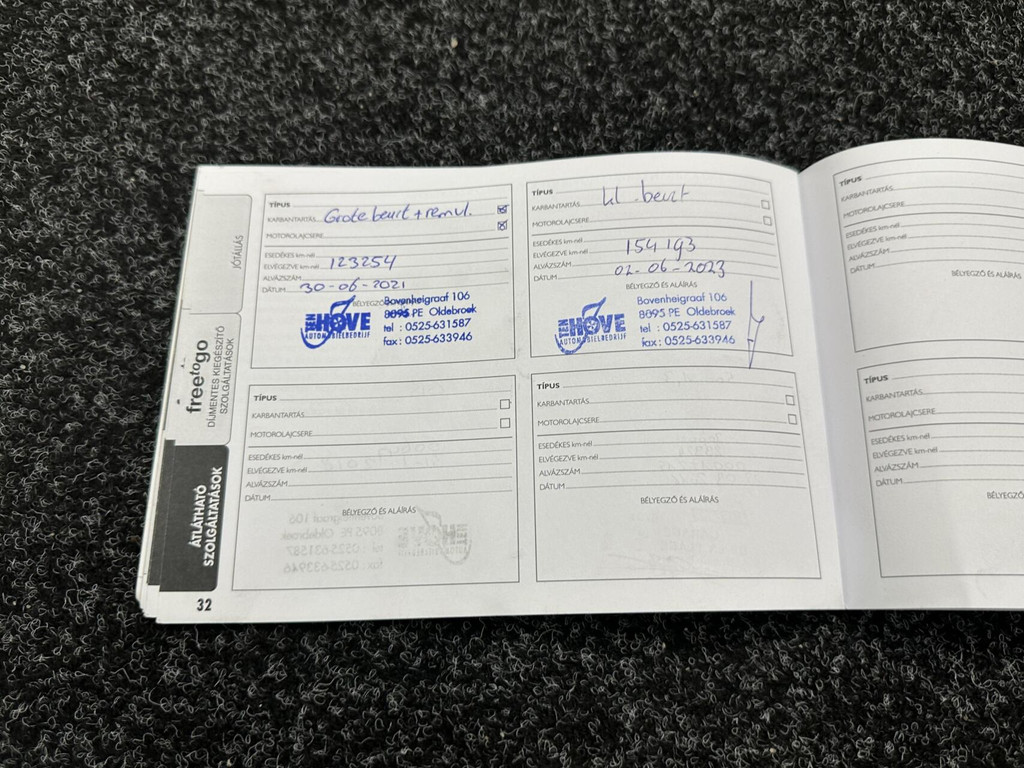 JÓTÁLLÁS
freetogo
DÍJMENTES KIEGÉSZÍTŐ
SZOLGÁLTATÁSOK
ÁTLÁTHATÓ
SZOLGÁLTATÁSOK
32
TÍPUS
KARBANTARTÁS Grote beurt + remvl.
MOTOROLAJCSERE
ESEDÉKES km-nél
ELVÉGEZVE km-nél 123254
ALVÁZSZÁM
DÁTUM 30-06-2021
BÉLYEGZŐ
TEN HOVE
AUTOMOBIELBEDRIJF
Bovenheigraaf 106
8095 PE Oldebroek
tel : 0525-631587
fax : 0525-633946
TÍPUS
KARBANTARTÁS kl. beurt
MOTOROLAJCSERE
ESEDÉKES km-nél
ELVÉGEZVE km-nél 154193
ALVÁZSZÁM
DÁTUM 02-06-2023
BÉLYEGZŐ ÉS ALÁÍRÁS
TEN HOVE
AUTOMOBIELBEDRIJF
Bovenheigraaf 106
8095 PE Oldebroek
tel : 0525-631587
fax : 0525-633946
TÍPUS
KARBANTARTÁS
MOTOROLAJCSERE
ESEDÉKES km-nél
ELVÉGEZVE km-nél
ALVÁZSZÁM
DÁTUM
BÉLYEGZŐ ÉS ALÁÍRÁS
TÍPUS
KARBANTARTÁS
MOTOROLAJCSERE
ESEDÉKES km-nél
ELVÉGEZVE km-nél
ALVÁZSZÁM
DÁTUM
BÉLYEGZŐ ÉS ALÁÍRÁS
TÍPUS
KARBANTARTÁS
MOTOROLAJCSERE
ESEDÉKES km-nél
ELVÉGEZVE km-nél
ALVÁZSZÁM
DÁTUM
BÉLYEGZŐ ÉS ALÁÍRÁS
TÍPUS
KARBANTARTÁS
MOTOROLAJCSERE
ESEDÉKES km-nél
ELVÉGEZVE km-nél
ALVÁZSZÁM
DÁTUM
BÉLYEGZŐ